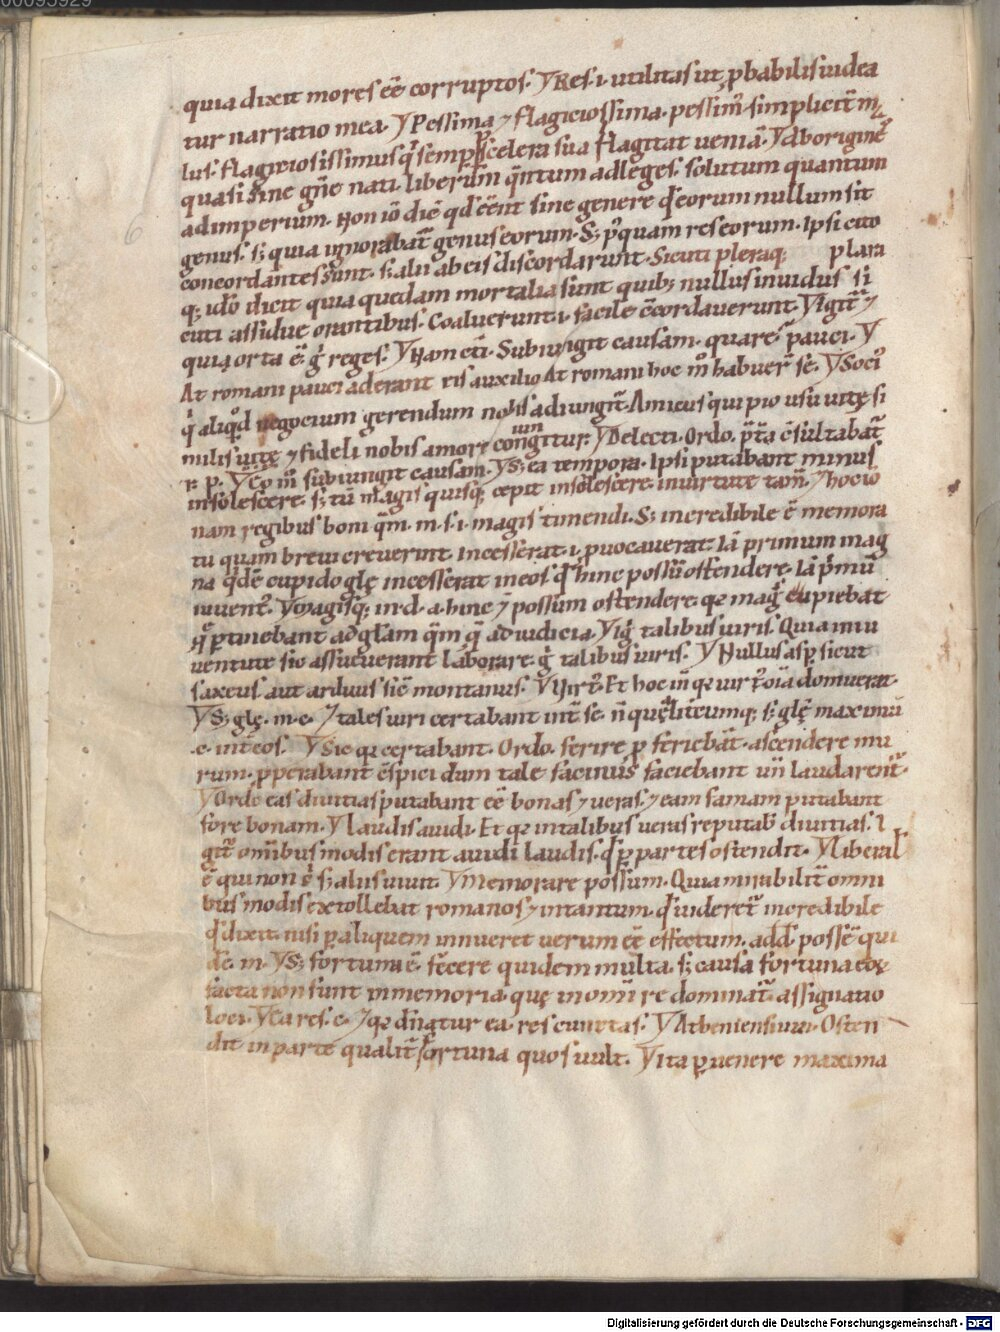 00095929
quia dixit mores eē corruptos. Ƴ Res .i. utilitas ut ꝓbabilis uidea
tur narratio mea. Ƴ Pessima ⁊ flagiciosissima. pessim̄. simplicit̄ m
lus. flagiciosissimus q̇ semꝑ scelera sua flagitat ueniā. Ƴ Aborigines
quasi sine gn̄e nati. liberūm q̄ntum ad leges. solutum quantum
ad imperium. Non iō dic̄ qd eēnt sine genere qd eorum nullum sit
genus. s; quia ignorabat̄ genus eorum. S; pꝰquam res eorum. Ipsi cito
concordantes sunt. s; alii ab eis discordarunt. Sicuti pleraq; plara
q; idō dicit quia quedam mortalia sunt quib; nullus inuidus si
cuti assidue orantibus. Coaluerunt .i. facile c̄cordauerunt. Ƴ Igit̄ ⁊
quia orta ē. g̊ reges. Ƴ Nam et̄i. Subiungit causam. quare pauci. Ƴ
At romani pauci aderant eis auxilio At romani hoc m̊ habuer̄ sē. Ƴ Socii
q̇ aliqd negocium gerendum nobis adiungit̄. Amicus qui pio usu uitę si
milis uitę ⁊ fideli nobis amore coniungitur: Ƴ Delecti. Ordo. p̄ta c̄sultabat̄
r. p. Ƴ Eo m̊ subiungit causam. Ƴ S; ea tempora. Ipsi putabant minus
insolescere. s; tū magis quisq; cepit insolescere. in uirtute tam̄. Ƴ hoc iō
nam regibus boni q̄m. m. s. i. magis timendi. S; incredibile ē memora
tu quam breui creuerint. Incesserat .i. ꝓuocauerat. Iā primum mag
na qdē cupido glę incesserat in eos qd hinc possū ostendere. Iā p̄mū
iuuent̄. Ƴ Magisq; in rd. a. hinc ⁊ possum ostendere. qr mag̊ cupiebat
q̄ ꝑtinebant ad glam q̄m q̄ ad iudicia. Ƴ ig̊ talibus uiris. Quia in iu
uentute sic assueuerant laborare. g̊ talibus uiris. Ƴ Nullus asꝑ sicut
saxeus aut arduus sic̄ montanus. Ƴ Virt̄. Et hoc in̄ qr uirt̄ oīa domuerat.
Ƴ S; glę. m. c. ⁊ tales uiri certabant int̄ se. n̄ quęlitcumq; s; glę maximū
c. int̄ eos. Ƴ Sic qr certabant. Ordo. ferire ꝑ feriebat̄. ascendere mu
rum. ꝓperabant c̄spici dum tale facinus faciebant un̄ laudarent̄.
Ƴ Ordo eas diuitias putabant eē bonas ⁊ ueras. ⁊ eam famam putabant
fore bonam. Ƴ laudis auidi. Et qr in talibus ueras reputab̄ diuitias. I
git̄ om̄ibus modis erant auidi laudis. qd ꝑ partes ostendit. Ƴ liberal
ē qui non s̄ s; aliis uiuit. Ƴ Memorare possum. Quia mirabilit̄ omni
bus modis extollebat romanos ⁊ intantum. qd uideret̄ incredibile
qd dixit. nisi ꝑ aliquem innueret uerum eē effectum. add̄. posse qui
dē. m. Ƴ S; fortuna ē. fecere quidem multa. s; causa fortuna eoꝝ
facta non sunt in memoria. quę in omni re dominat̄. assignatio
loci. Ƴ Ea res. c. ⁊ qr dn̄atur ea. res cunctas. Ƴ Atheniensium. Osten
dit in parte qualit̄ fortuna quos uult. Ƴ ita ꝑuenere maxima
6
Digitalisierung gefördert durch die Deutsche Forschungsgemeinschaft - DFG